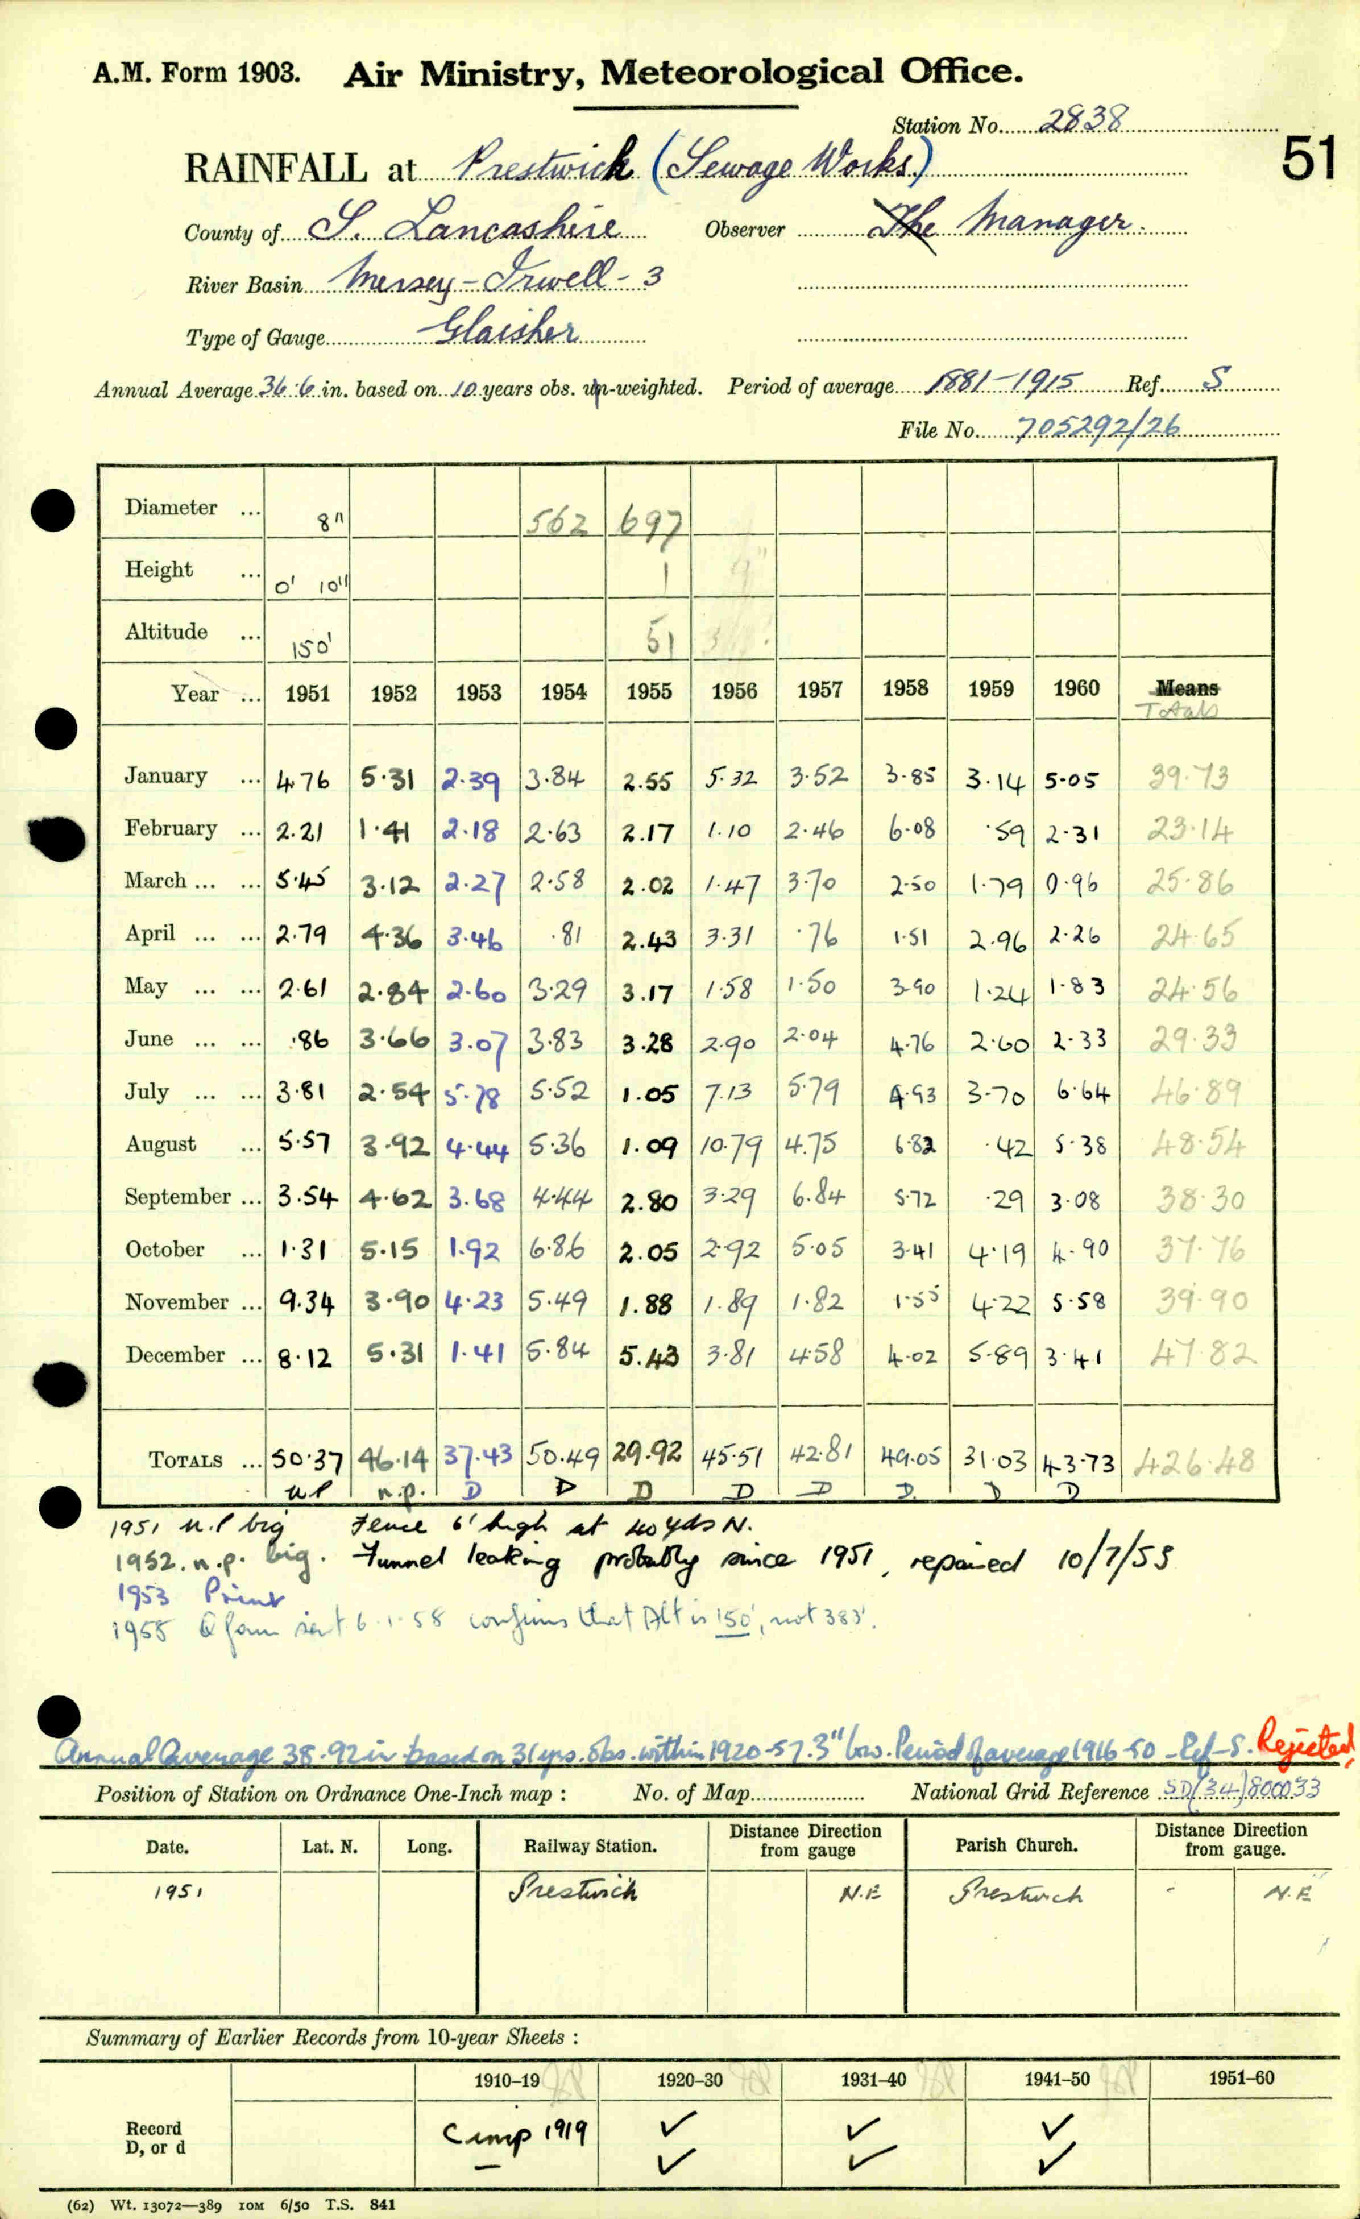 A.M. Form 1903. Air Ministry, Meteorological Office.
Station No. 2838
51
RAINFALL at Prestwich (Sewage Works)
County of S. Lancashire Observer The Manager.
River Basin Mersey - Irwell - 3
Type of Gauge Glaisher
Annual Average 36.6 in. based on 10 years obs. un-weighted. Period of average 1881-1915 Ref. S
File No. 705292/26
Diameter ... 8" 562 697
Height ... 0' 10" 1
Altitude ... 150' 51
Year ... 1951 1952 1953 1954 1955 1956 1957 1958 1959 1960 Means
Totals
January ... 4.76 5.31 2.39 3.84 2.55 5.32 3.52 3.85 3.14 5.05 39.73
February ... 2.21 1.41 2.18 2.63 2.17 1.10 2.46 6.08 .59 2.31 23.14
March ... ... 5.45 3.12 2.27 2.58 2.02 1.47 3.70 2.50 1.79 0.96 25.86
April ... ... 2.79 4.36 3.46 .81 2.43 3.31 .76 1.51 2.96 2.26 24.65
May ... ... 2.61 2.84 2.60 3.29 3.17 1.58 1.50 3.90 1.24 1.83 24.56
June ... ... .86 3.66 3.07 3.83 3.28 2.90 2.04 4.76 2.60 2.33 29.33
July ... ... 3.81 2.54 5.78 5.52 1.05 7.13 5.79 4.93 3.70 6.64 46.89
August ... 5.57 3.92 4.44 5.36 1.09 10.79 4.75 6.82 .42 5.38 48.54
September ... 3.54 4.62 3.68 4.44 2.80 3.29 6.84 5.72 .29 3.08 38.30
October ... 1.31 5.15 1.92 6.86 2.05 2.92 5.05 3.41 4.19 4.90 37.76
November ... 9.34 3.90 4.23 5.49 1.88 1.89 1.82 1.55 4.22 5.58 39.90
December ... 8.12 5.31 1.41 5.84 5.43 3.81 4.58 4.02 5.89 3.41 47.82
TOTALS ... 50.37 46.14 37.43 50.49 29.92 45.51 42.81 49.05 31.03 43.73 426.48
n.P n.p. D D D D D D. D D
1951 n.P big Fence 6' high at 40 yds N.
1952. n.p. big. Funnel leaking probably since 1951, repaired 10/7/53
1953 Print
1955 Q form sent 6.1.58 confirms that Alt is 150', not 383'.
Annual Average 38.92 in based on 31 yrs. obs. within 1920-57. 3" low. Period of average 1916-50 - Ref - S. Rejected
Position of Station on Ordnance One-Inch map : No. of Map National Grid Reference SD(34)800033
Date. Lat. N. Long. Railway Station. Distance Direction from gauge Parish Church. Distance Direction from gauge.
1951 Prestwich N.E Prestwich - N.E
Summary of Earlier Records from 10-year Sheets :
1910-19 1920-30 1931-40 1941-50 1951-60
Record Comp 1919 ✓ ✓ ✓
D, or d – ✓ ✓ ✓
(62) Wt. 13072—389 10M 6/50 T.S. 841